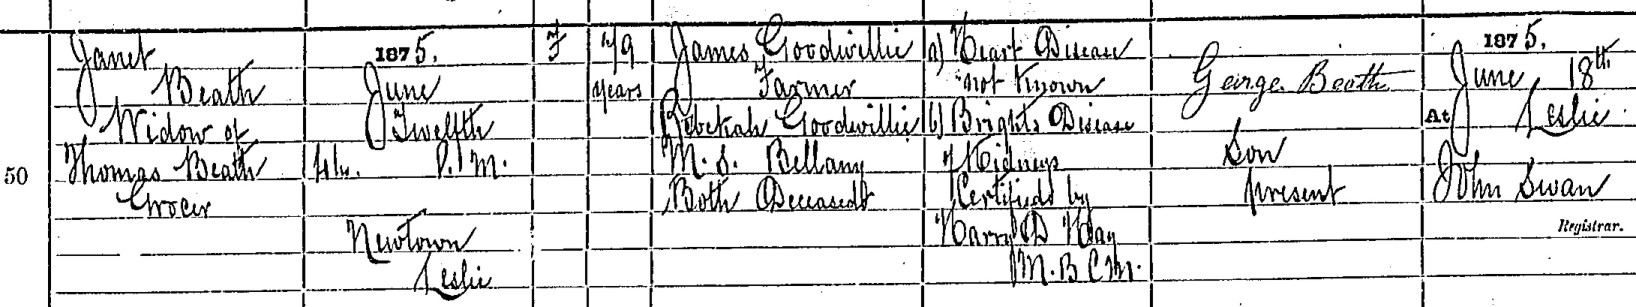 50
Janet
Beath
Widow of
Thomas Beath
Grocer
1875.
June
Twelfth
4h. P.M.
Newtown
Leslie
F
79
years
James Goodwillie
Farmer
Rebekah Goodwillie
M. S. Bellamy
Both Deceased
a) Heart Disease
not Known
b) Brights Disease
of Kidneys
Certified by
Harry D Hay
M.B.C.M.
George Beath
Son
present
1875.
June 18th
At Leslie
John Swan
Registrar.